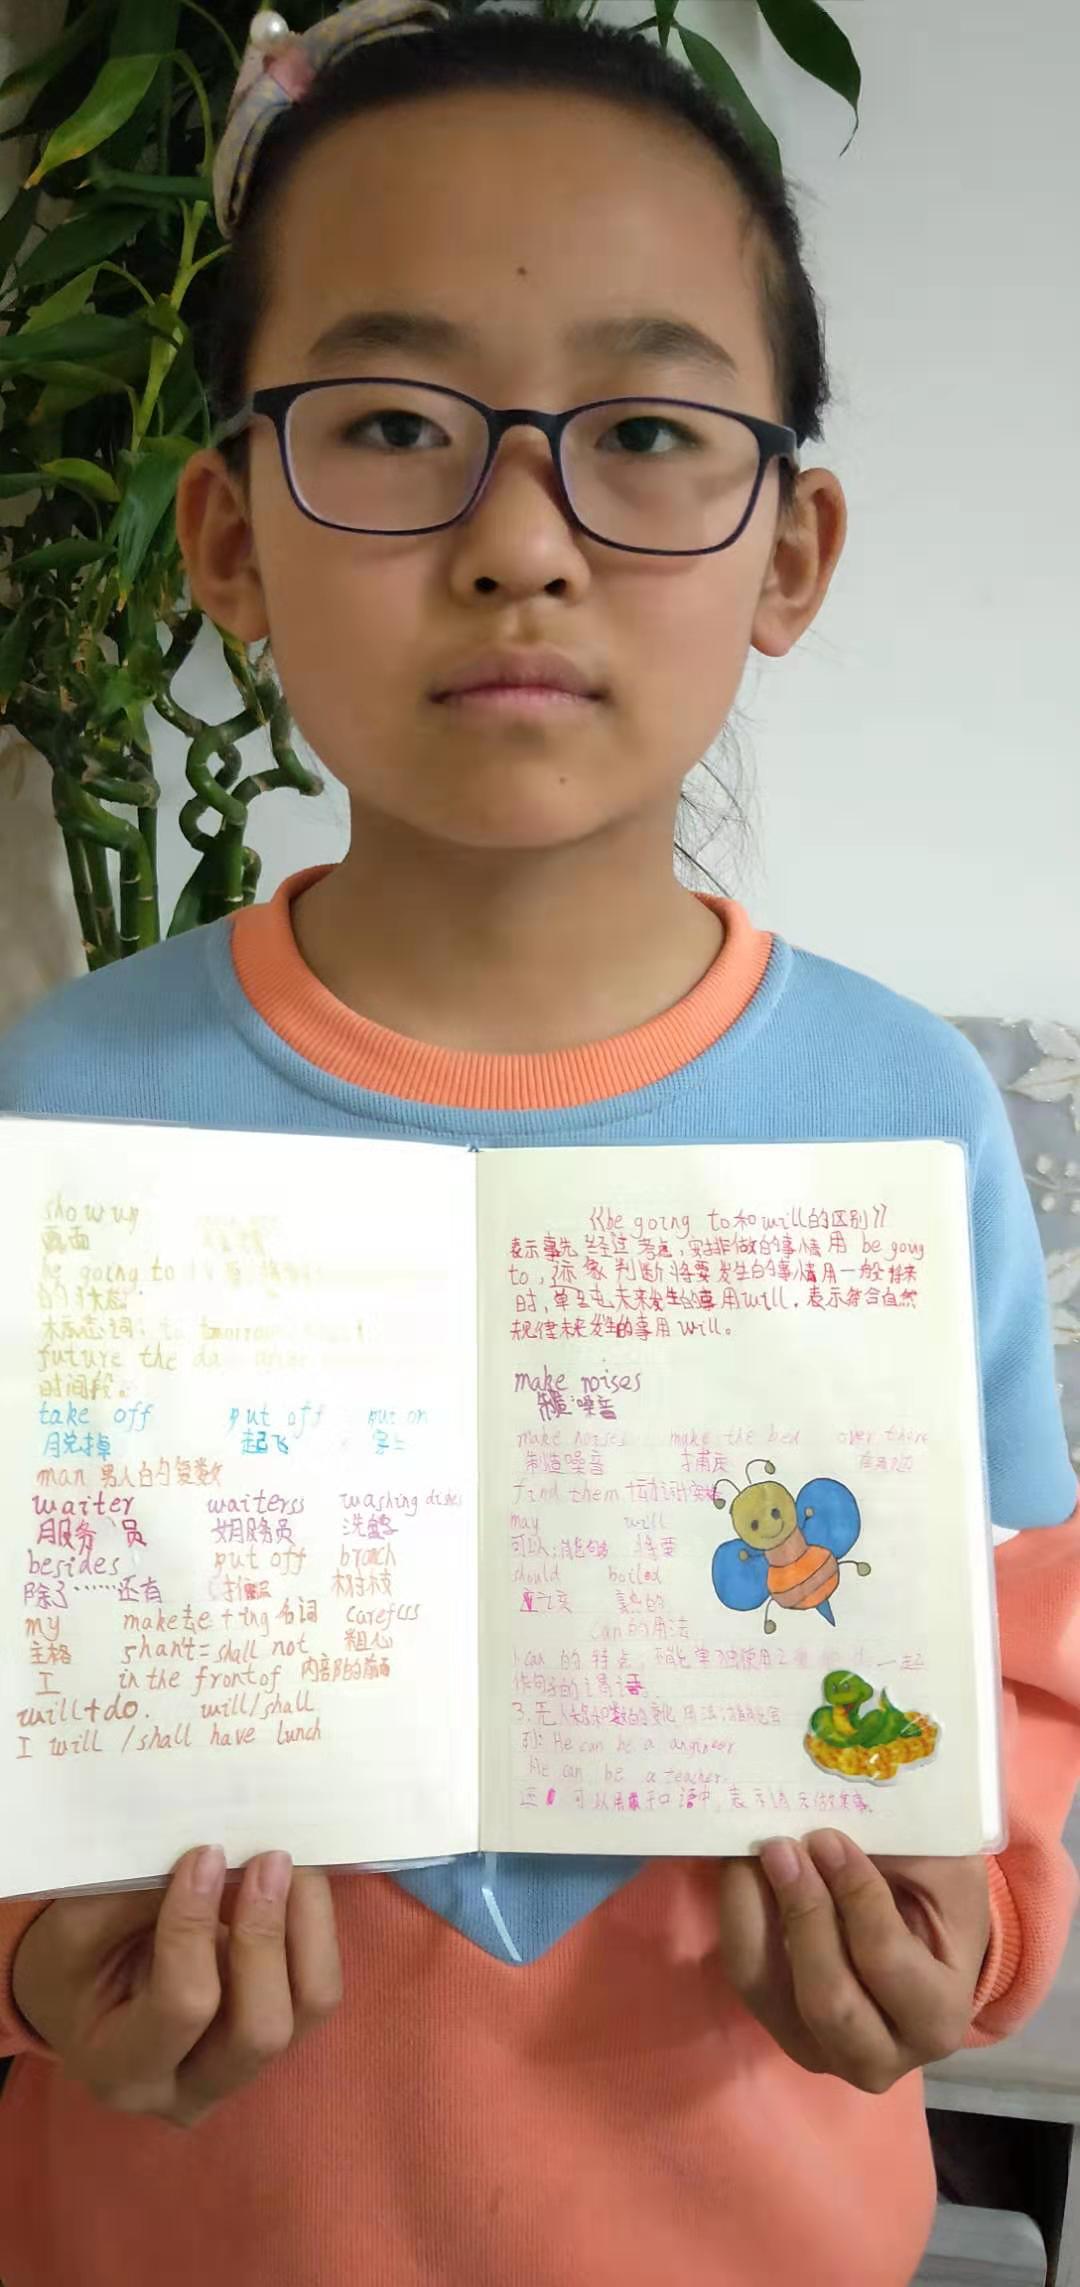 show up
画面
be going to
的状态
标志词: to tomorrow
future the da
时间段。
take off put off put on
脱掉 起飞
man 男人的复数
waiter waiterss washing dishes
服务员 女服务员 洗盘子
besides put off branch
除了……还有 推 树枝
my make去e+ing名词 carefcss
主格 shant=shall not 粗心
I in the front of 内部的前面
will+do. will/shall
I will /shall have lunch
《be going to和will的区别》
表示事先经过考虑,安排做的事情用 be going
to,迹象判断将要发生的事情用一般将来
时,单纯未来发生的事用will.表示符合自然
规律未来发生的事用will。
make noises
制造噪音
make noises make the bed over there
制造噪音 铺床
find them
may will
可以; 将要
should boiled
应该 煮的
can的用法
1 can 的特点,不能单独使用 一起
作句子的谓语。
3.无人称和数的变化 用法:
例: He can be a angineer
He can be a teacher.
还可以用于口语中,表示请示做某事。